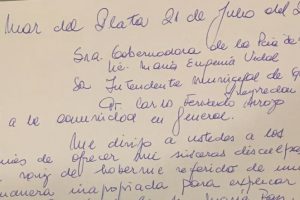 Mar del Plata 21 de Julio del 2
Sra. Gobernadora de la Pcia de
Lic. María Eugenia Vidal
Sr Intendente municipal de G
Pueyrredon
Cr. Carlos Fernando Arroyo
a la comunidad en General.
Me dirijo a ustedes a los
nes de ofrecer mis sinceras disculpas
a raiz de haberme referido de una
manera inapropiada para explicar
María